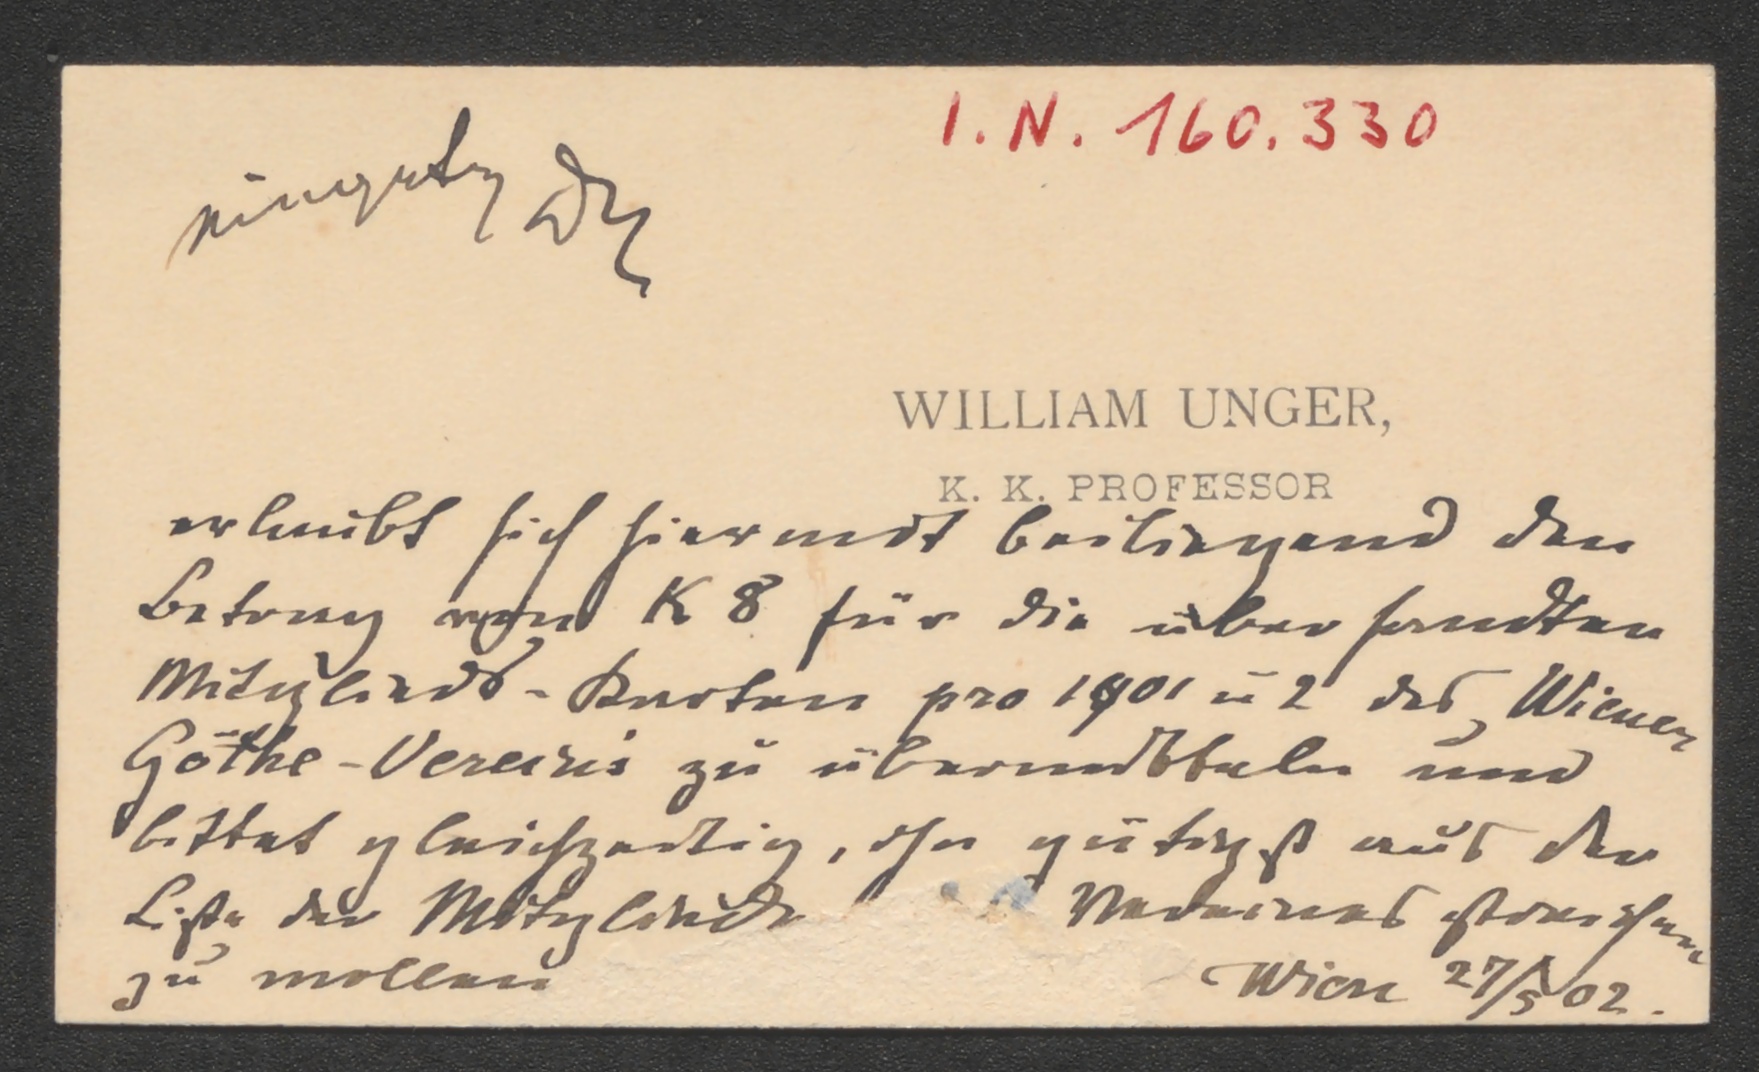 I. N. 160.330
WILLIAM UNGER,
K. K. PROFESSOR
erlaubt sich hiermit beiliegend den
Betrag von K 8 für die übersandten
Mitglieds-Karten pro 1901 u 2 des Wiener
Göthe-Vereins zu übermitteln und
bittet gleichzeitig, ihn gütigst aus der
Liste der Mitglieder Vereines streichen
zu wollen
Wien 27/5 02.